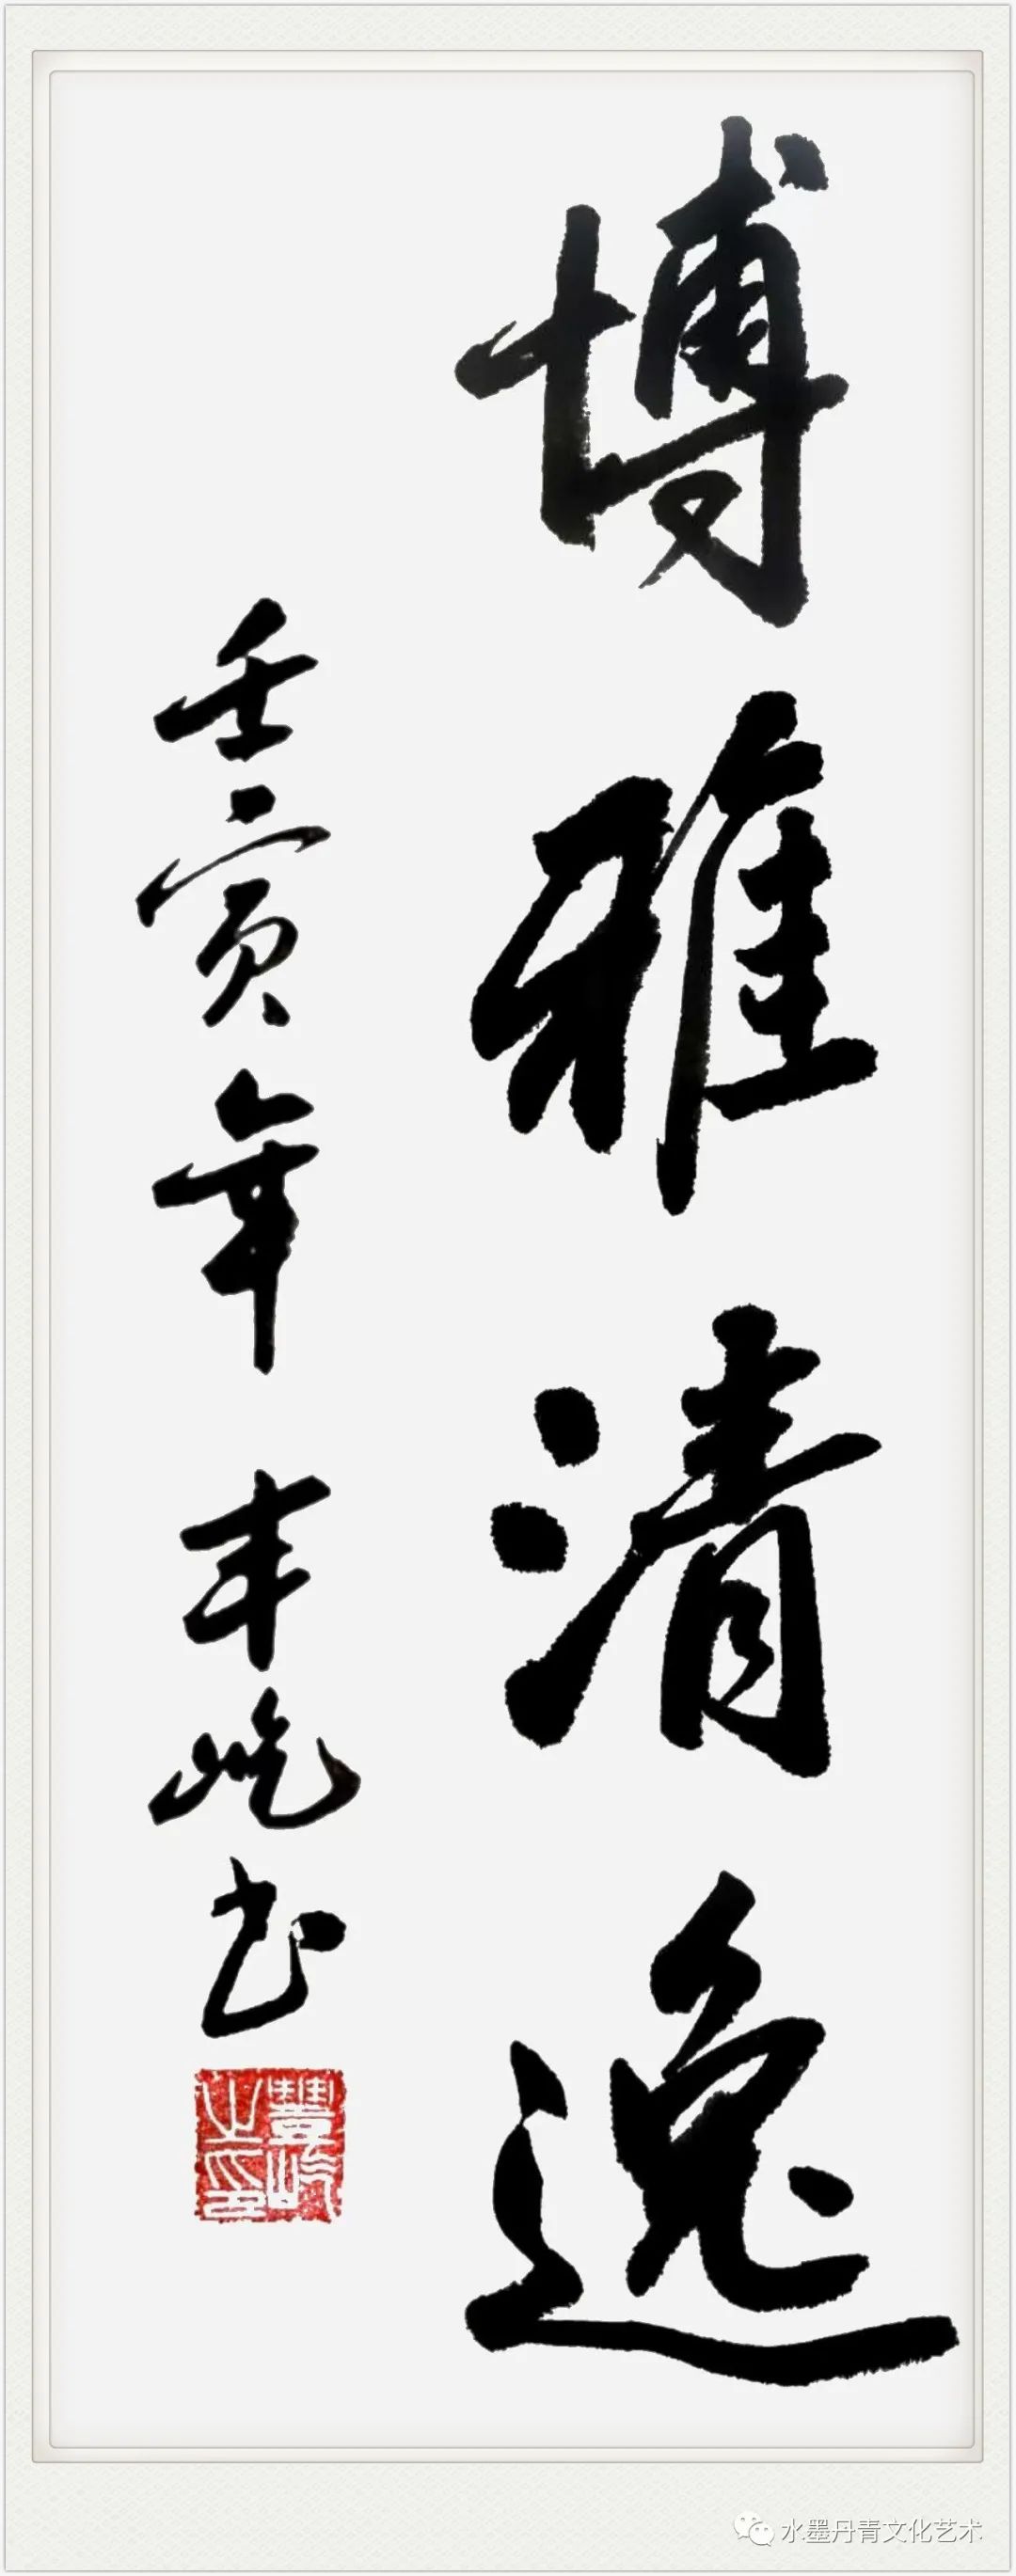 博雅清逸
壬寅年 丰屹书
水墨丹青文化艺术